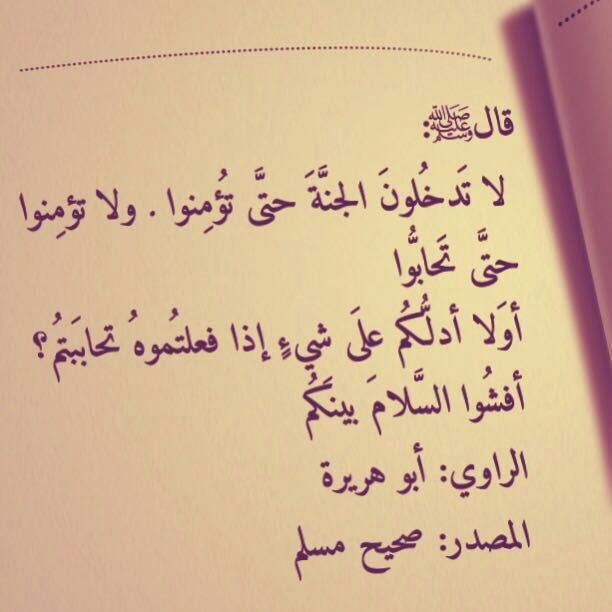 قال ﷺ:
لا تَدخُلونَ الجنَّةَ حتَّى تُؤمِنوا . ولا تؤمِنوا
حتَّى تَحابُّوا
أوَلا أدلُّكُم علَى شيءٍ إذا فعلتُموهُ تحاببَتمُ ؟
أفشُوا السَّلامَ بينَكُم
الراوي: أبو هريرة
المصدر: صحيح مسلم